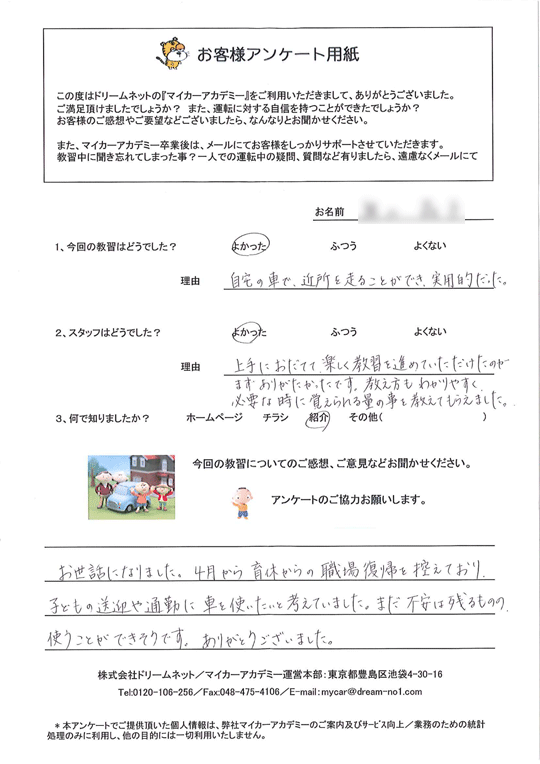 お客様アンケート用紙
この度はドリームネットの『マイカーアカデミー』をご利用いただきまして、ありがとうございました。
ご満足頂けましたでしょうか？ また、運転に対する自信を持つことができたでしょうか？
お客様のご感想やご要望などございましたら、なんなりとお聞かせください。
また、マイカーアカデミー卒業後は、メールにてお客様をしっかりサポートさせていただきます。
教習中に聞き忘れてしまった事？一人での運転中の疑問、質問など有りましたら、遠慮なくメールにて
お名前
1、今回の教習はどうでした？ よかった ふつう よくない
理由 自宅の車で、近所を走ることができ、実用的だった。
2、スタッフはどうでした？ よかった ふつう よくない
理由 上手におだてて、楽しく教習を進めていただけたのが
まずありがたかったです。教え方もわかりやすく、
必要な時に覚えられる量の事を教えてもらえました。
3、何で知りましたか？ ホームページ チラシ 紹介 その他( )
今回の教習についてのご感想、ご意見などお聞かせください。
アンケートのご協力お願いします。
お世話になりました。4月から育休からの職場復帰を控えており、
子どもの送迎や通勤に車を使いたいと考えていました。まだ不安は残るものの、
使うことができそうです。ありがとうございました。
株式会社ドリームネット／マイカーアカデミー運営本部：東京都豊島区池袋4-30-16
Tel:0120-106-256／Fax:048-475-4106／E-mail：mycar@dream-no1.com
＊本アンケートでご提供頂いた個人情報は、弊社マイカーアカデミーのご案内及びサービス向上／業務のための統計
処理のみに利用し、他の目的には一切利用いたしません。